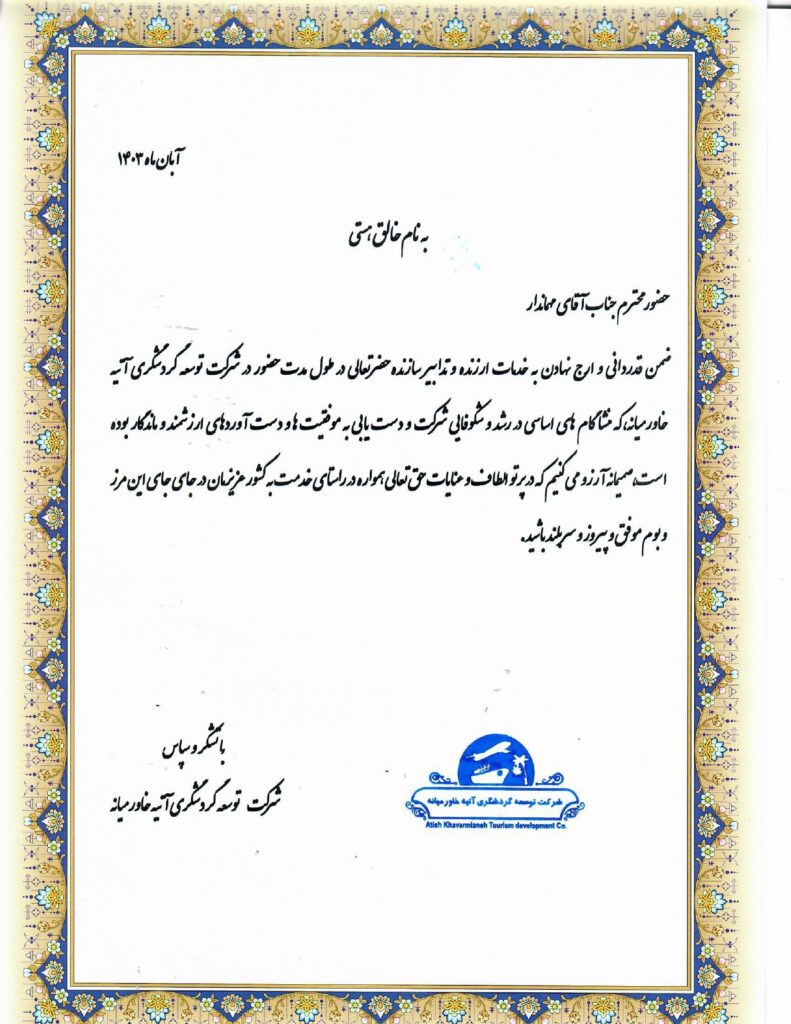 آبان ماه ۱۴۰۳
به نام خالق هستی
حضور محترم جناب آقای مهماندار
ضمن قدردانی و ارج نهادن به خدمات ارزنده و تدابیر سازنده حضرتعالی در طول مدت حضور در شرکت توسعه گردشگری آتیه
خاورمیانه، که منشا گام های اساسی در رشد و شکوفایی شرکت و دست یابی به موفقیت ها و دست آوردهای ارزشمند و ماندگار بوده
است، صمیمانه آرزو می کنیم که در پرتو الطاف و عنایات حق تعالی همواره در راستای خدمت به کشور عزیزمان در جای جای این مرز
و بوم موفق و پیروز و سربلند باشید.
با تشکر و سپاس
شرکت توسعه گردشگری آتیه خاورمیانه
شرکت توسعه گردشگری آتیه خاورمیانه
Atieh Khavarmianeh Tourism development Co.